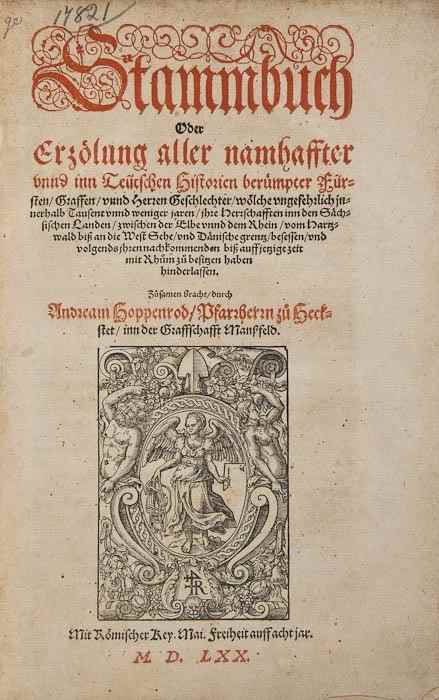 ge
17821
Stammbuch
Oder
Erzölung aller namhaffter
vnnd inn Teütschen Historien berümpter Für-
sten/ Graffen/ vnnd Herren Geschlechter/ wölche vngefehrlich in-
nerhalb Tausent vnnd weniger jaren/ jhre Herrschafften inn den Säch-
sischen Landen/ zwischen der Elbe vnnd dem Rhein/ vom Hartz-
wald biß an die West Sehe/ vnd Dänische grentz/ besessen/ vnd
volgends jhren nachkommenden biß auff jetzige zeit
mit Rhům zů besitzen haben
hinderlassen.
Zůsamen bracht/ durch
Andream Hoppenrod/ Pfarrherrn zů Heck-
stet/ inn der Graffschafft Manßfeld.
Mit Römischer Key. Mai. Freiheit auff acht jar.
M. D. LXX.